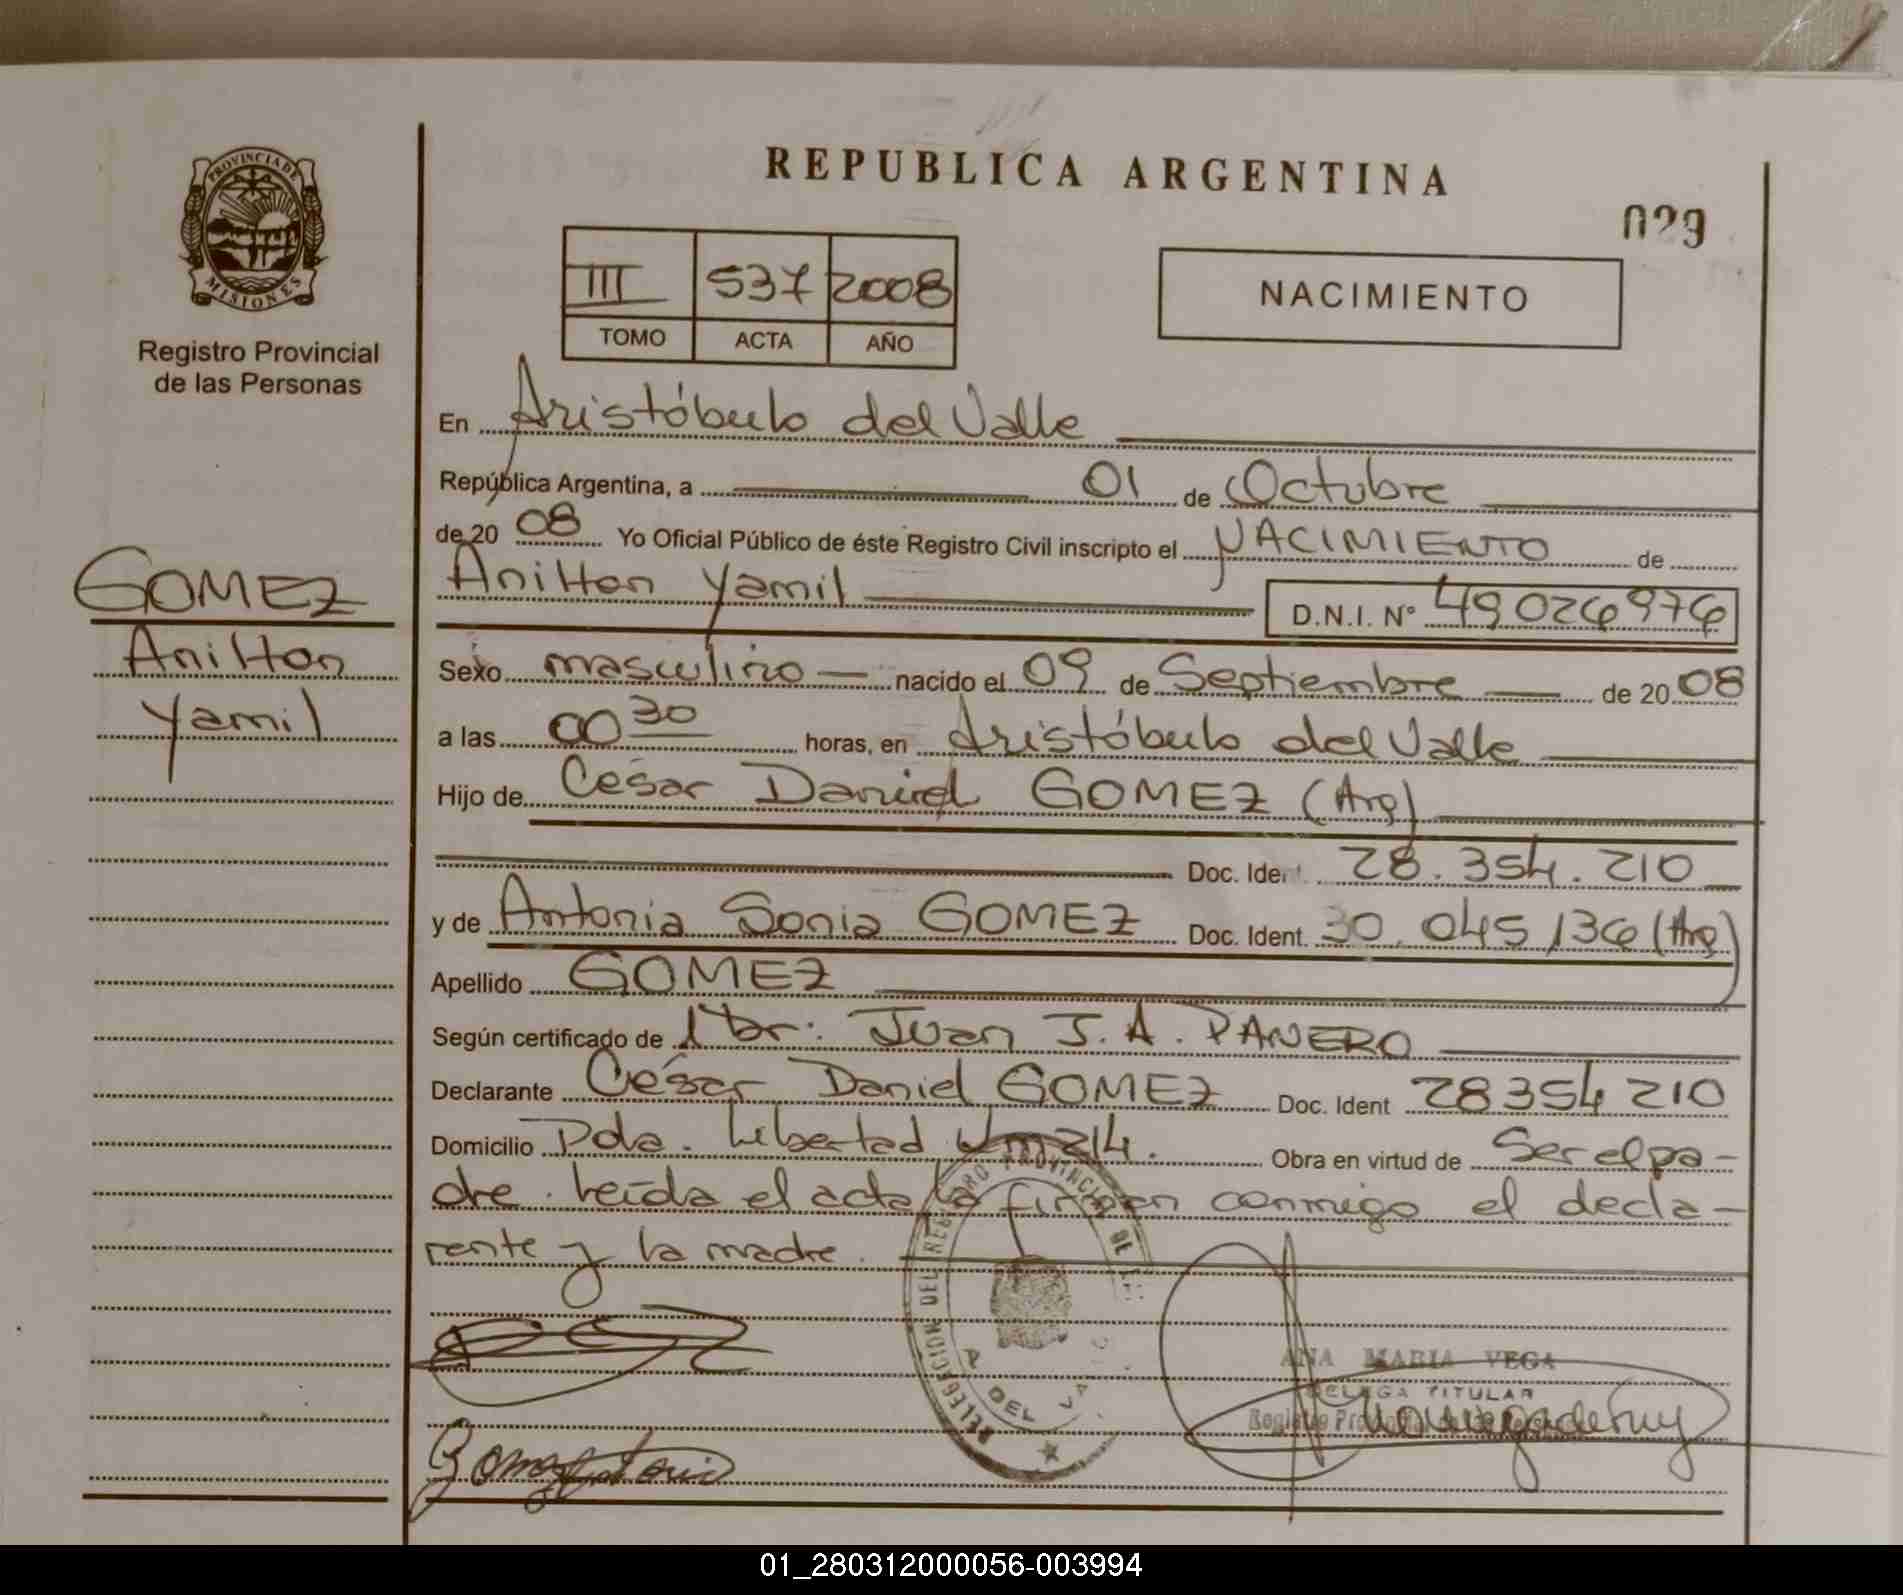 REPUBLICA ARGENTINA
029
PROVINCIA DE
MISIONES
Registro Provincial
de las Personas
III 537 2008
TOMO ACTA AÑO
NACIMIENTO
En Aristóbulo del Valle
República Argentina, a 01 de Octubre
de 20 08 Yo Oficial Público de éste Registro Civil inscripto el NACIMIENTO de
Anilton Yamil D.N.I. Nº 49026976
GOMEZ
Anilton
Yamil
Sexo masculino nacido el 09 de Septiembre de 20 08
a las 00 30 horas, en Aristóbulo del Valle
Hijo de César Daniel GOMEZ (Arg)
Doc. Ident. 28.354.210
y de Antonia Sonia GOMEZ Doc. Ident. 30.045.136 (Arg)
Apellido GOMEZ
Según certificado de Dr. Juan J. A. PANERO
Declarante César Daniel GOMEZ Doc. Ident 28354210
Domicilio Pda. Libertad Km 214. Obra en virtud de Ser el pa-
dre. Leída el acta la firman conmigo el decla-
rante y la madre.
ANA MARIA VEGA
DELEGA TITULAR
Registro Provincial de las Personas
DELEGACION DEL REGISTRO PROVINCIAL DE
DEL VA
01_280312000056-003994